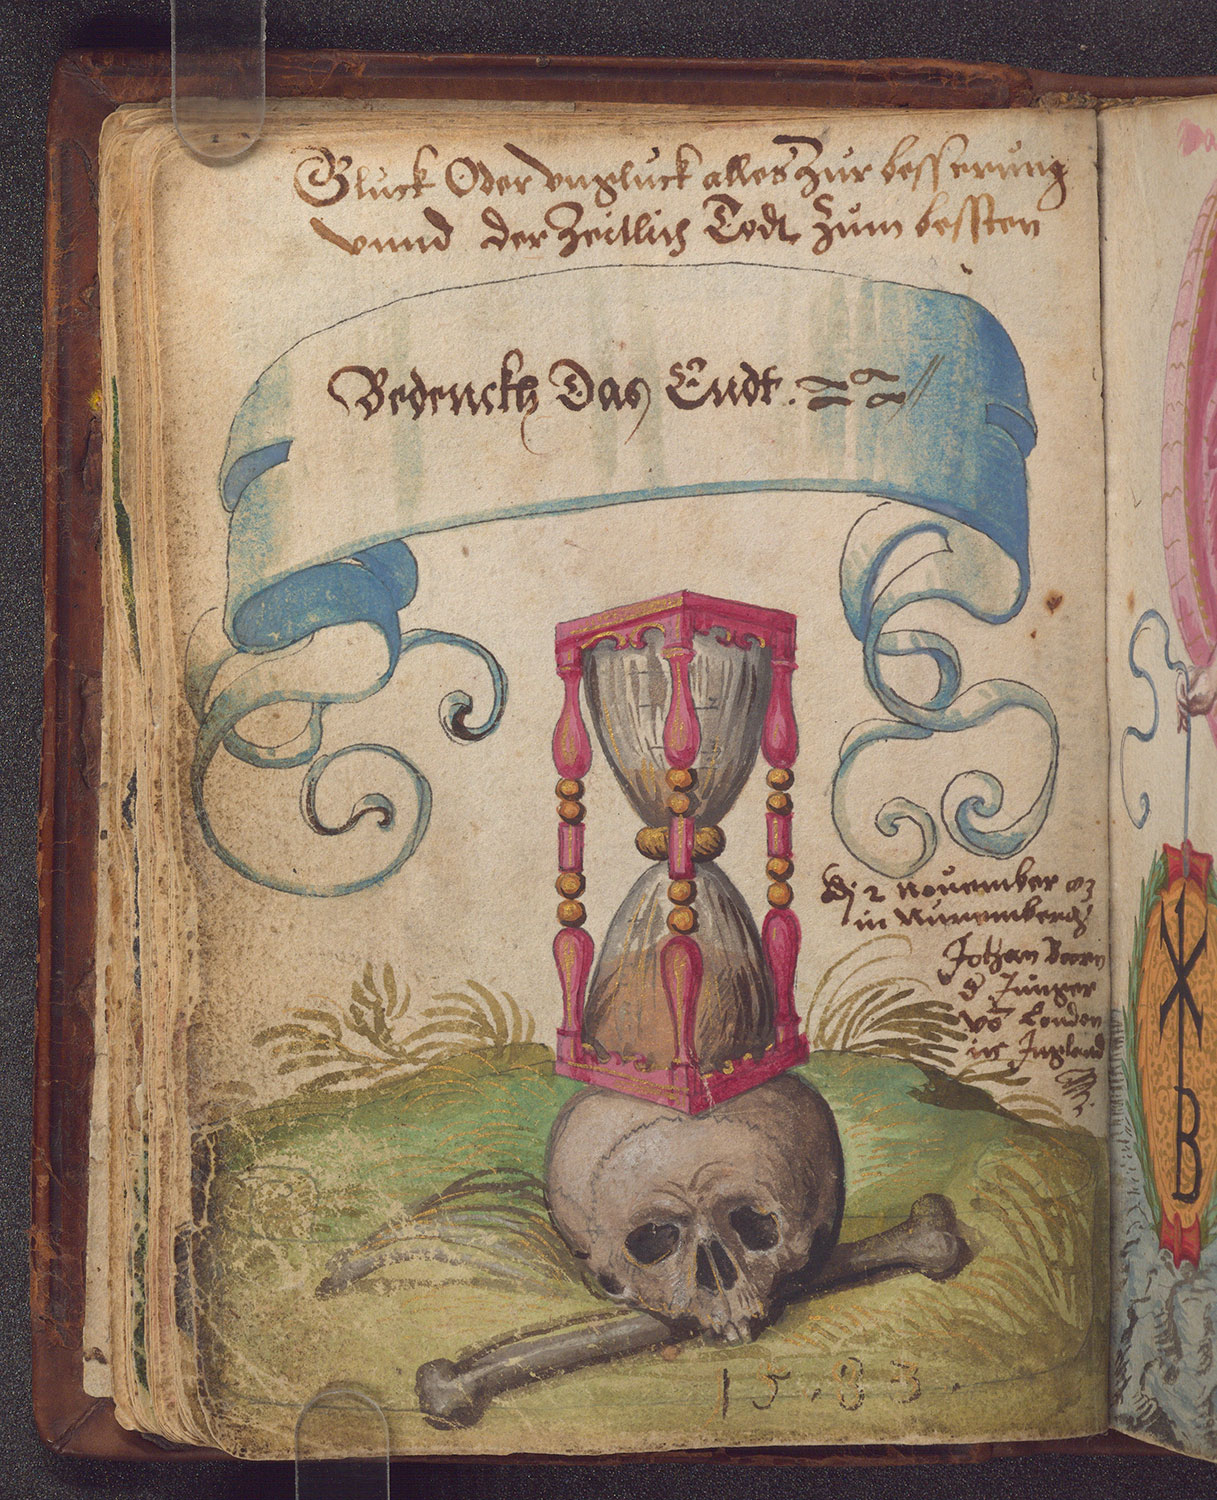 Gluck Oder vngluck alles Zur besserung
vnnd der Zeitlich Todt Zum bessten
Bedenckh Das Endt.
dj 2 nouember 83
in Nurembergh
Johan
d Junger
vō Londen
in Ingland
15.83.
B